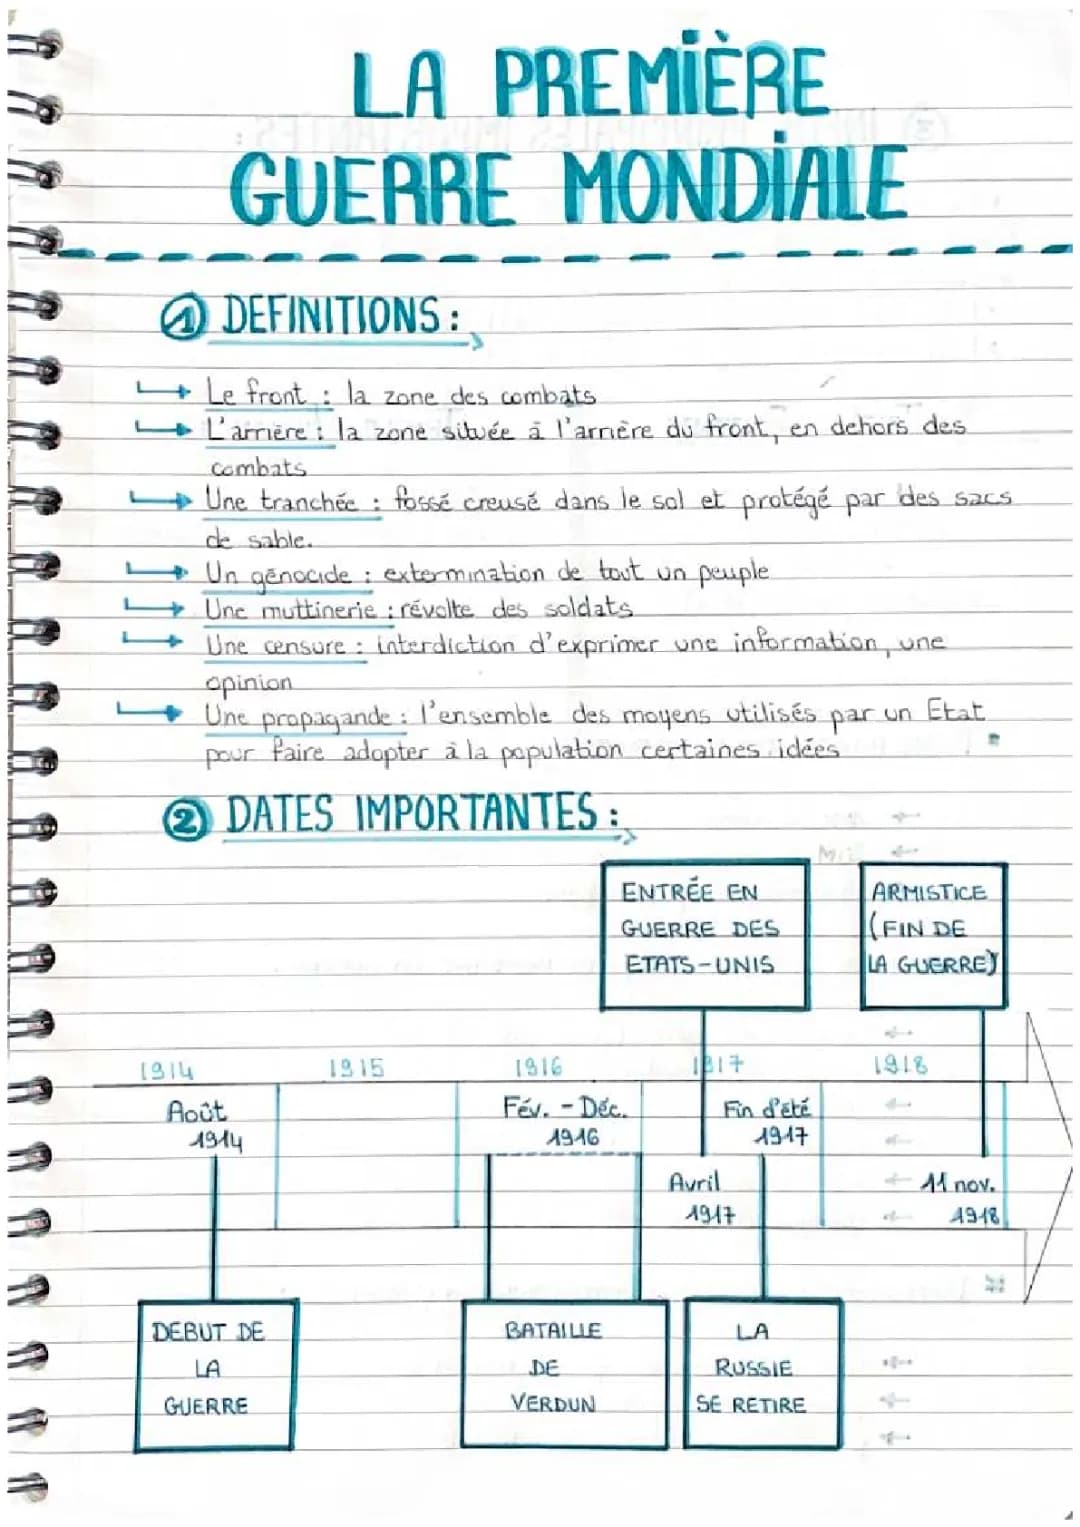 LA PREMIÈRE
GUERRE MONDIALE
① DEFINITIONS :
Le front : la zone des combats
L'arrière : la zone située à l'arrière du front, en dehors des
combats
Une tranchée : fossé creusé dans le sol et protégé par des sacs
de sable.
Un génocide : extermination de tout un peuple
Une muttinerie : révolte des soldats
Une censure : interdiction d'exprimer une information, une
opinion
Une propagande : l'ensemble des moyens utilisés par un Etat
pour faire adopter à la population certaines idées
② DATES IMPORTANTES :
ENTRÉE EN
GUERRE DES
ETATS-UNIS
ARMISTICE
(FIN DE
LA GUERRE)
1914 1915 1916 1917 1918
Août
1914
Fév. - Déc.
1916
Fin d'été
1917
Avril
1917
11 nov.
1918
DEBUT DE
LA
GUERRE
BATAILLE
DE
VERDUN
LA
RUSSIE
SE RETIRE